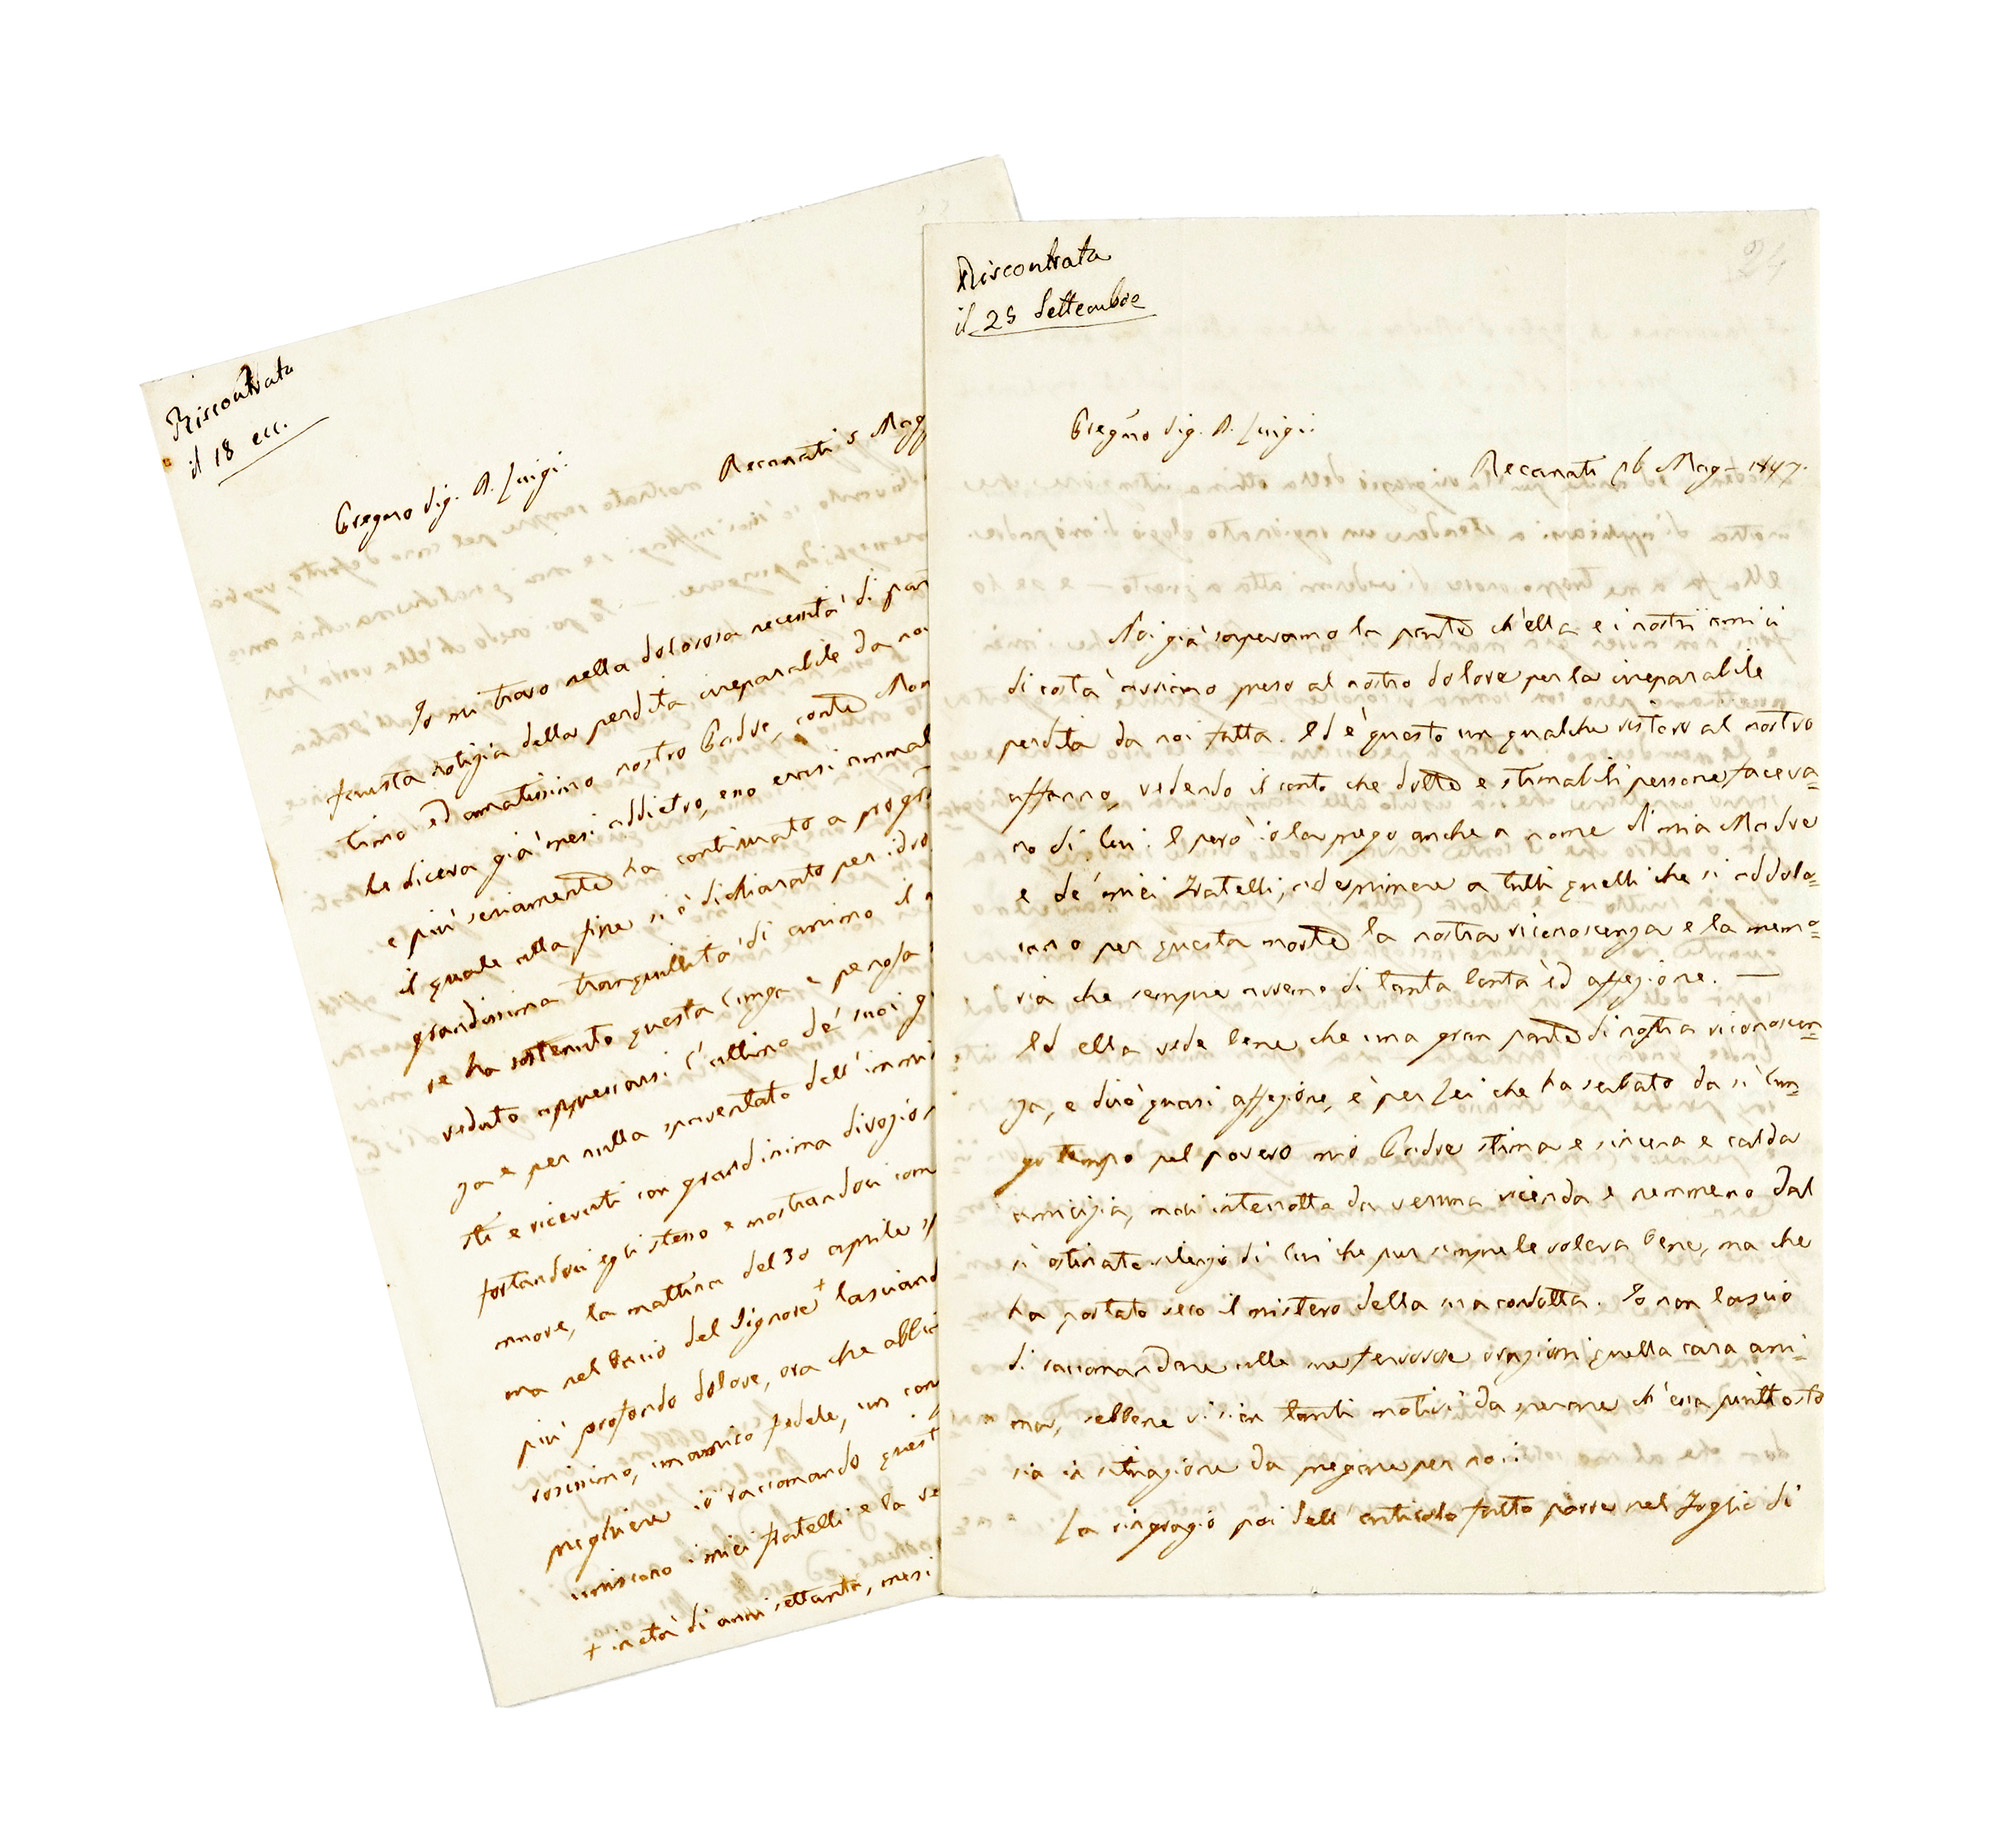 Riscontrata
il 18 ecc.
Pregmo Sig. D. Luigi.
Recanati 5 Magg
Io mi trovo nella dolorosa necessità di par
funesta notizia della perdita irreparabile da noi
timo ed amatissimo nostro Padre, conte Mon
le diceva già mesi addietro, eno erasi ammal
e più seriamente ha continuato a progre
il quale alla fine si è dichiarato per idro
grandissima tranquillità di animo il
se ha sostenuto questa lunga e penosa
veduto appressarsi l'ultimo de' suoi g
za e per nulla spaventato dell'immi
sti e ricevuti con grandissima divozio
fortandoci egli stesso e mostrandoci com
muore, la mattina del 30 aprile sp
ma nel bacio del Signore + lasciand
più profondo dolore, ora che abbia
rosissimo, un amico fedele, un con
preghiere io raccomando quest
uniscono i miei fratelli e la ve
+ in età di anni settanta, mesi
Riscontrata
il 25 Settembre
24
Pregmo Sig. D. Luigi.
Recanati 26 Mag- 1847.
Noi già sapevamo la parte ch'ella e i nostri amici
di costà avriano preso al nostro dolore per la irreparabile
perdita da noi fatta. Ed è questo un qualche ristoro al nostro
affanno, vedendo il conto che dotte e stimabili persone faceva=
no di lui. E però io la prego anche a nome di mia Madre
e de' miei Fratelli, ad esprimere a tutti quelli che si addolo=
rano per questa morte la nostra riconoscenza e la memo=
ria che sempre avremo di tanta bontà ed affezione. —
Ed ella vede bene che una gran parte di nostra riconoscen=
za, e dirò quasi affezione, è per Lei che ha serbato da sì lun=
go tempo pel povero mio Padre stima e sincera e calda
amicizia, mai interrotta da veruna vicenda e nemmeno dal
sì ostinato silenzio di lui che pur sempre le voleva bene, ma che
ha portato seco il mistero della sua condotta. Io non lascio
di raccomandare alle sue fervorose orazioni quella cara ani=
ma, sebbene vi sian tanti motivi da sperare ch'essa piuttosto
sia in situazione da pregare per noi.
La ringrazio poi dell'articolo fatto porre nel Foglio di